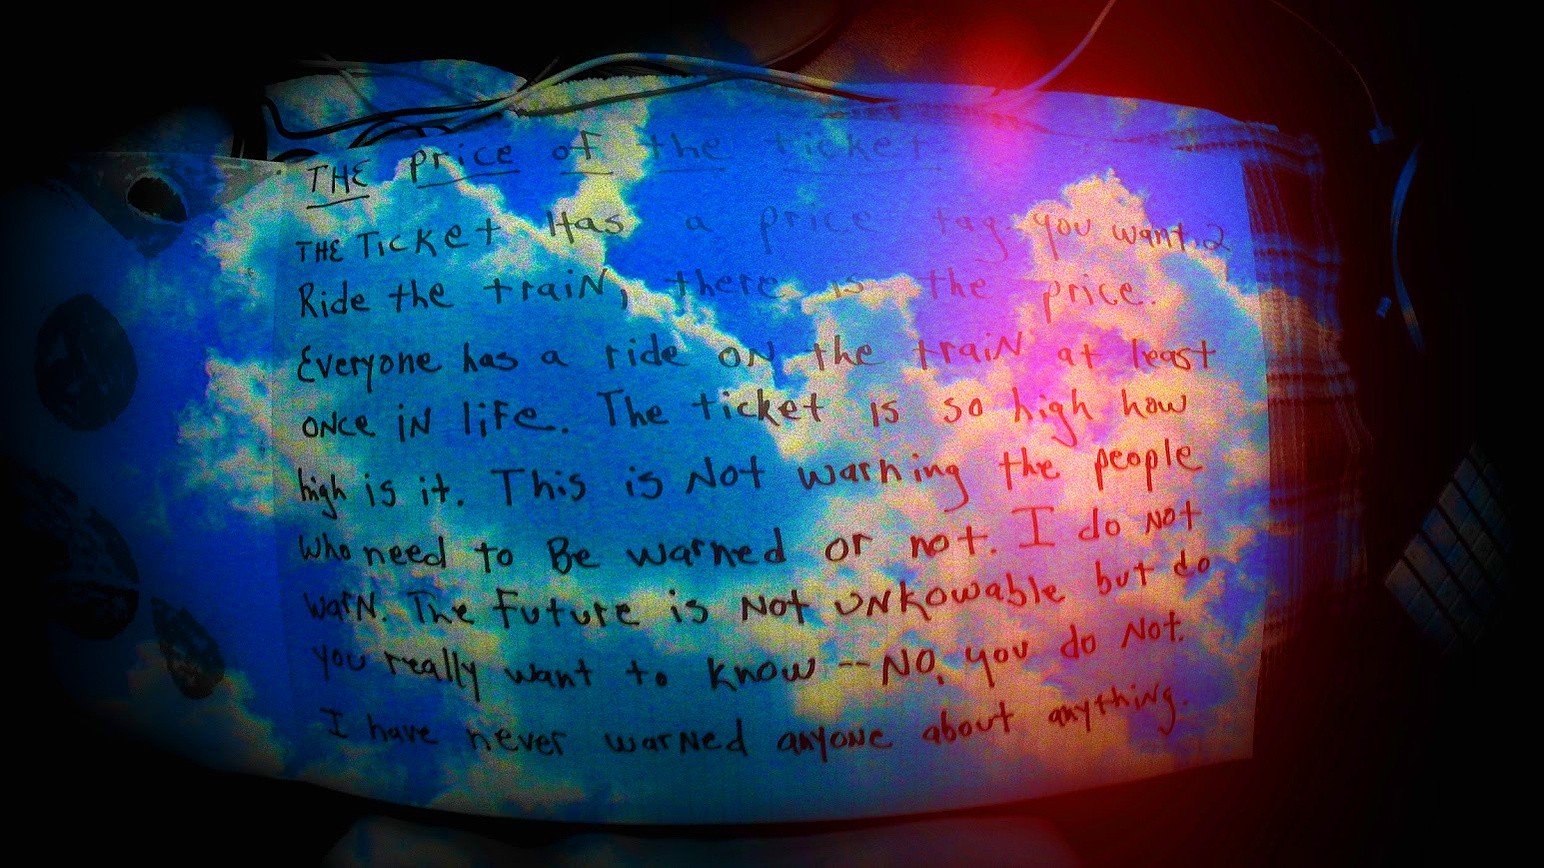 THE price of the ticket
THE Ticket Has a price tag. you want 2
Ride the traiN, there is the price.
Everyone has a ride oN the traiN at least
oNce iN liFe. The ticket is so high how
high is it. This is Not warning the people
who need to Be warned or not. I do not
warN. The Future is Not UNkowable but do
you really want to know -- NO, you do Not.
I have never warned anyone about anything.